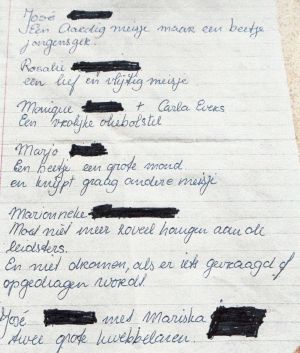 José
Een Aardig meisje maar een beetje
jongensgek.
Rosalie
een lief en vlijtig meisje
Monique + Carla Evers
Een vrolijke oliebolstel
Marjo
Een beetje een grote mond
en knijpt graag andere meisje
Marionneke
Moet niet meer zoveel hangen aan de
leidsters.
En niet dromen, als er iets gevraagd of
opgedragen wordt
José met Mariska
twee grote kwebbelaren.